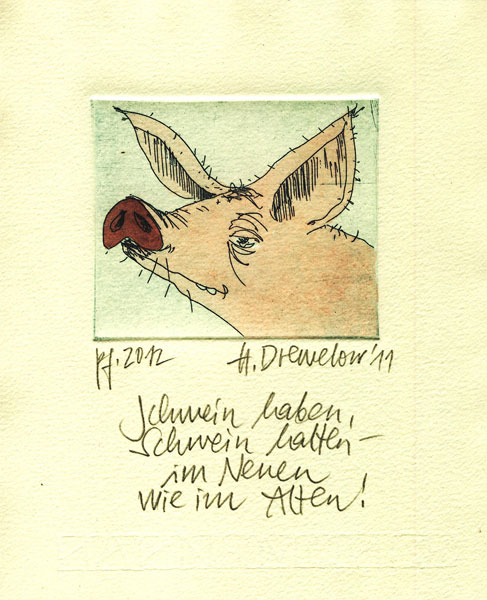 pf. 2012 H. Drewelow '11
Schwein haben,
Schwein halten –
im Neuen
wie im Alten!